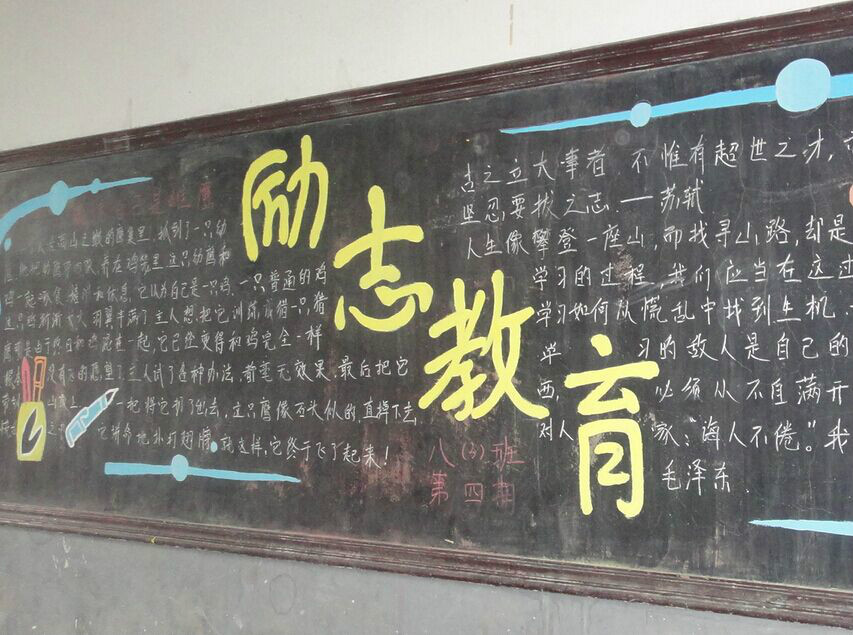 励志教育
是雄鹰
高山之巅的鹰巢里,抓到了一只幼
养在鸡笼里,这只幼鹰和
鸡一起啄食、嬉闹和休息,它认为自己是一只鸡,一只普通的鸡
这只鹰渐渐长大,羽翼丰满了,主人想把它训练成猎
鹰,可是由于终日和鸡混在一起,它已经变得和鸡完全一样
根本没有飞的愿望了,主人试了各种办法,都毫无效果,最后把它
带到山顶上,一把将它扔了出去,这只鹰像石头似的,直掉下去
之中它拼命地扑打翅膀,就这样,它终于飞了起来!
八(3)班
第四期
古之立大事者,不惟有超世之才,
坚忍要拔之志.一苏轼
人生像攀登一座山,而找寻山路,却是
学习的过程,我们应当在这过
学习如何从慌乱中找到生机.
学习的敌人是自己的
西,必须从不自满开
对人家:"诲人不倦。"我
毛泽东.